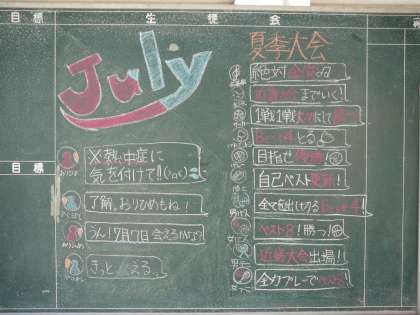 目標
生徒会
目標
July
夏季大会
※熱中症に
気を付けて!!
おりひめ
了解。おりひめもね!
うん!7月7日 会えるかな?
きっと 会える。
絶対
近畿大会までいく!
1戦1戦大切にして
ベスト4とる
目指せ優勝!
自己ベスト更新!
全てを出しきるベスト4!
ベスト8!勝つ!
近畿大会出場!!
全力プレーで